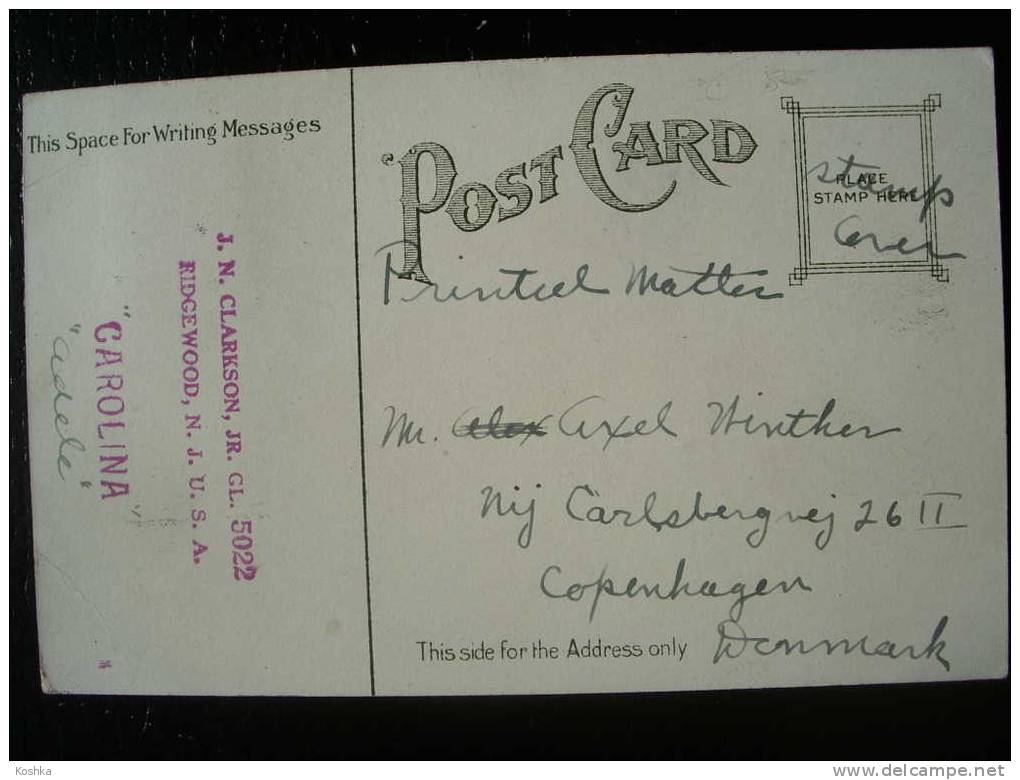 This Space For Writing Messages
J. N. CLARKSON, JR. GL. 5022
RIDGEWOOD, N. J. U. S. A.
"CAROLINA"
"Adele"
POST CARD
PLACE
STAMP HERE
Stamp
Cover
Printed Matter
Mr. Alex Axel Winther
Nij Carlsbergvej 26 II
Copenhagen
Denmark
This side for the Address only
Koshka
delcampe.net